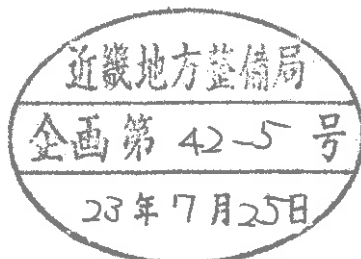 近畿地方整備局
企画第 42-5 号
23年7月25日